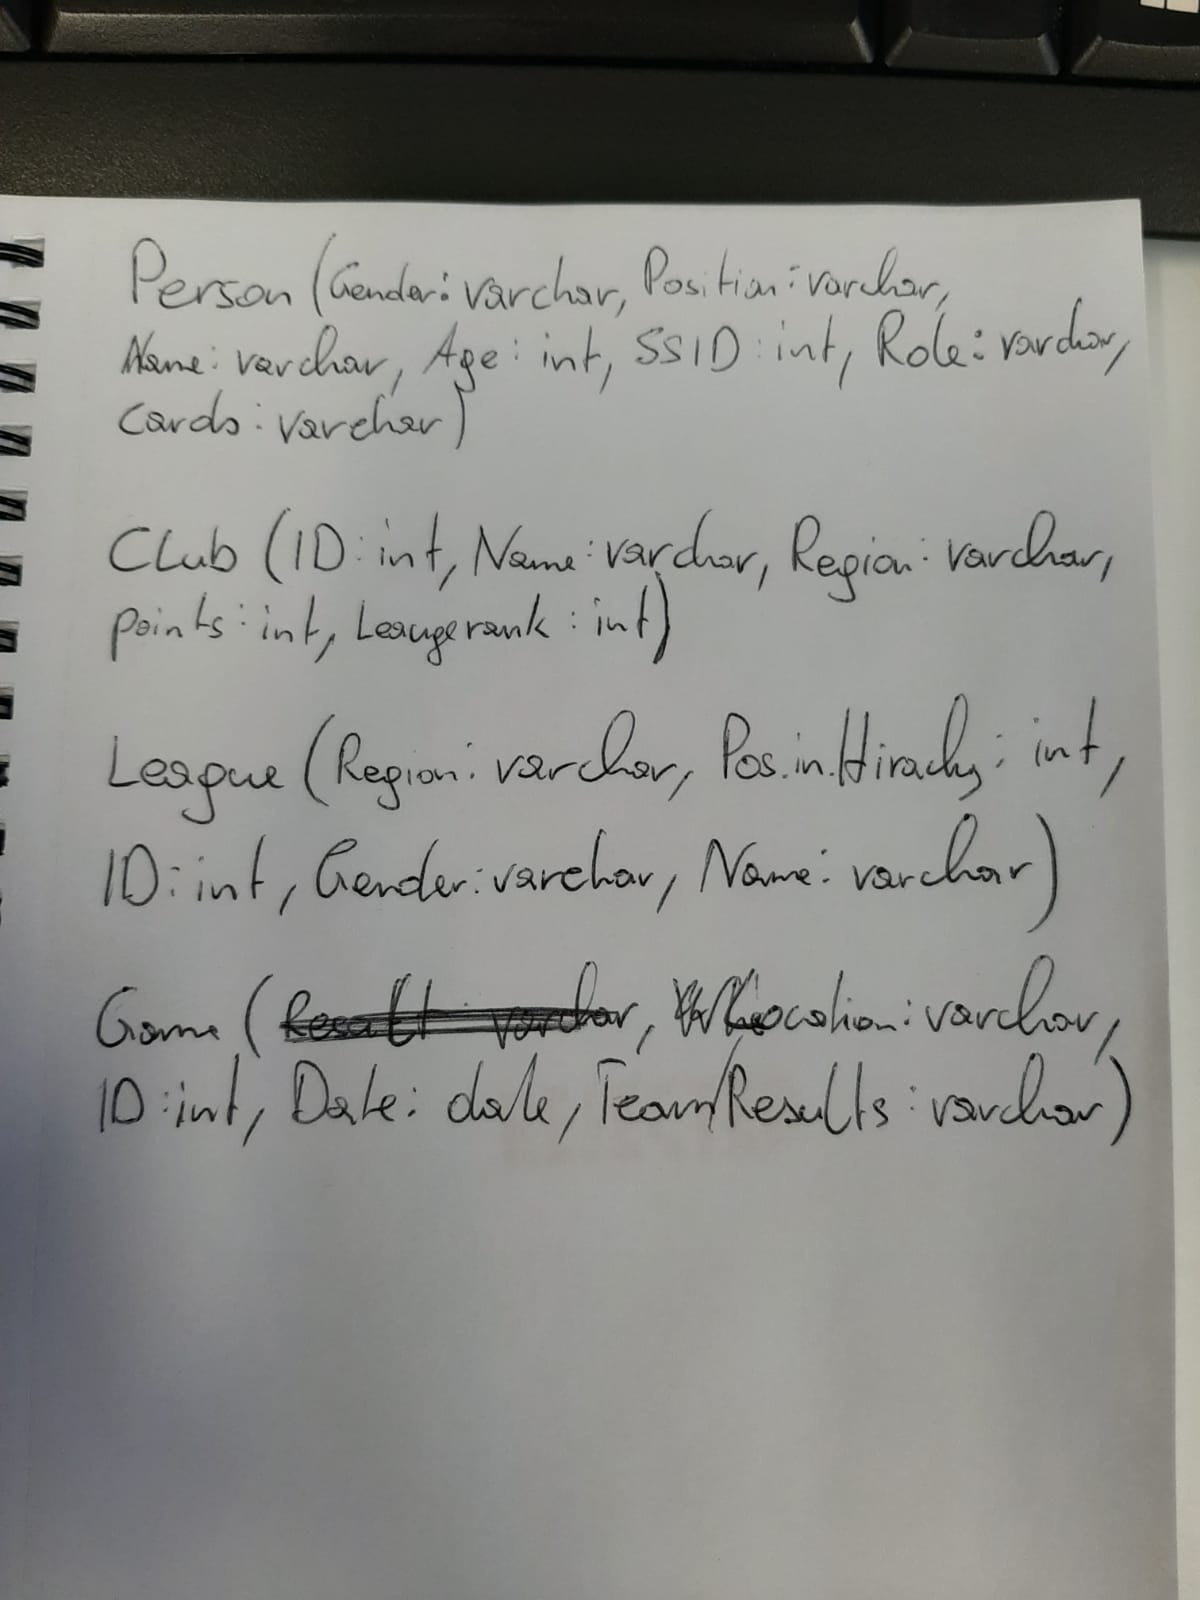 Person (Gender: varchar, Position: varchar,
Name: varchar, Age: int, SSID: int, Role: varchar,
Cards: varchar)
Club (ID: int, Name: varchar, Region: varchar,
points: int, Leaugerank: int)
League (Region: varchar, Pos.in.Hirachy: int,
ID: int, Gender: varchar, Name: varchar)
Game (Result: varchar, Location: varchar,
ID: int, Date: date, Team/Results: varchar)